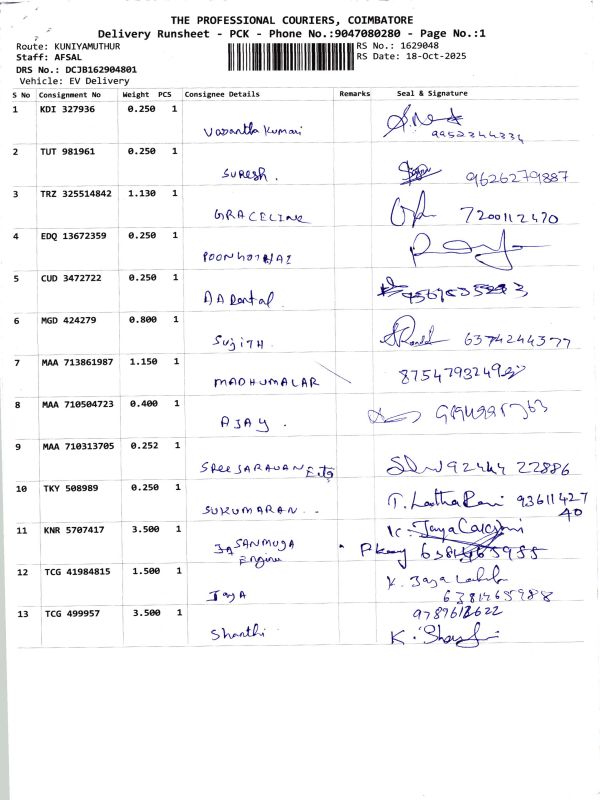 THE PROFESSIONAL COURIERS, COIMBATORE
Delivery Runsheet - PCK - Phone No.:9047080280 - Page No.:1
Route: KUNIYAMUTHUR RS No.: 1629048
Staff: AFSAL RS Date: 18-Oct-2025
DRS No.: DCJB162904801
Vehicle: EV Delivery
S No Consignment No Weight PCS Consignee Details Remarks Seal & Signature
1 KDI 327936 0.250 1
Vasantha Kumari 9952344334
2 TUT 981961 0.250 1
SURESH. 9626279887
3 TRZ 325514842 1.130 1
GRACELINE 7200112470
4 EDQ 13672359 0.250 1
5 CUD 3472722 0.250 1
DA Dental
6 MGD 424279 0.800 1
SUJITH. 6374244377
7 MAA 713861987 1.150 1
MADHUMALAR 8754793249
8 MAA 710504723 0.400 1
AJAY.
9 MAA 710313705 0.252 1
SREE SARAVAN 22886
10 TKY 508989 0.250 1
SUKUMARAN. 93611427
40
11 KNR 5707417 3.500 1
SANMUGA
Engine
12 TCG 41984815 1.500 1
JAYA K. Jaya
13 TCG 499957 3.500 1
Shanthi K.